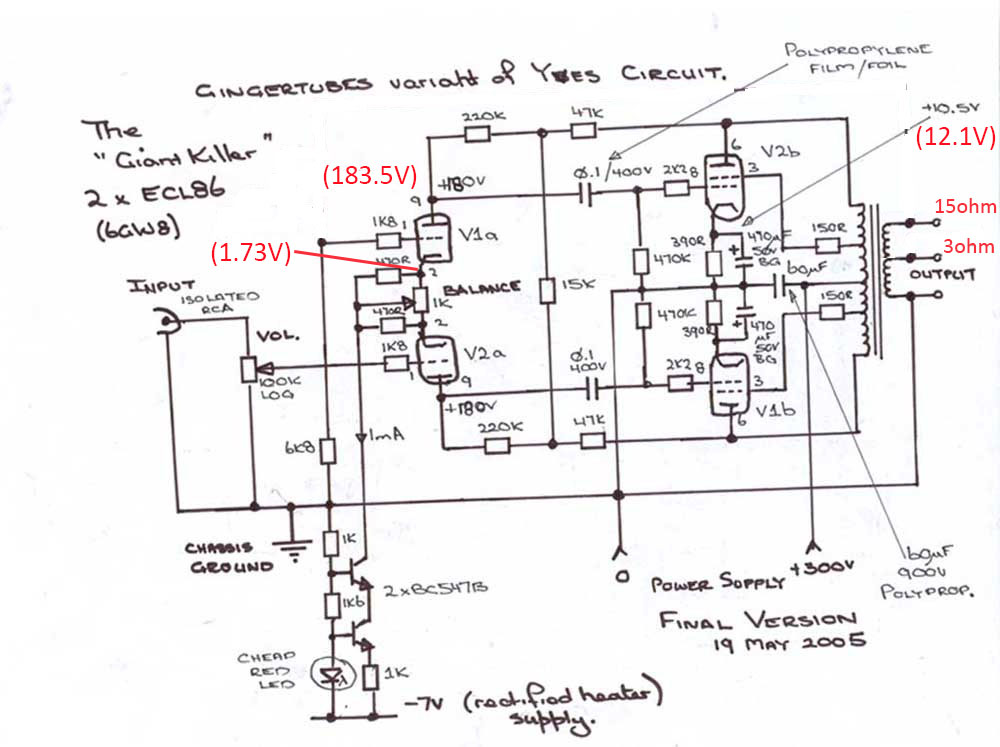 GINGERTUBES variant of YVES CIRCUIT.
POLYPROPYLENE
FILM/FOIL
The
"Giant Killer"
2 x ECL86
(6GW8)
220K
47K
+10.5V
(12.1V)
(183.5V)
+180V
9
Ø.1/400V
2K2
8
6
V2b
3
1K8
1
V1a
15ohm
(1.73V)
470R
2
390R
470µF
50V
BG
150R
3ohm
470K
60µF
OUTPUT
INPUT
ISOLATED
RCA
BALANCE
1K
15K
150R
470R
2
470K
390R
470
µF
50V
BG
VOL.
1K8
1
V2a
9
Ø.1
400V
2K2
8
3
V1b
6
100K
LOG
+180V
1mA
220K
47K
6K8
CHASSIS
GROUND
1K
2xBC547B
0
POWER SUPPLY
+300V
60µF
900V
POLYPROP.
1K6
FINAL VERSION
19 MAY 2005
CHEAP
RED
LED
1K
-7V (rectified heater)
supply.